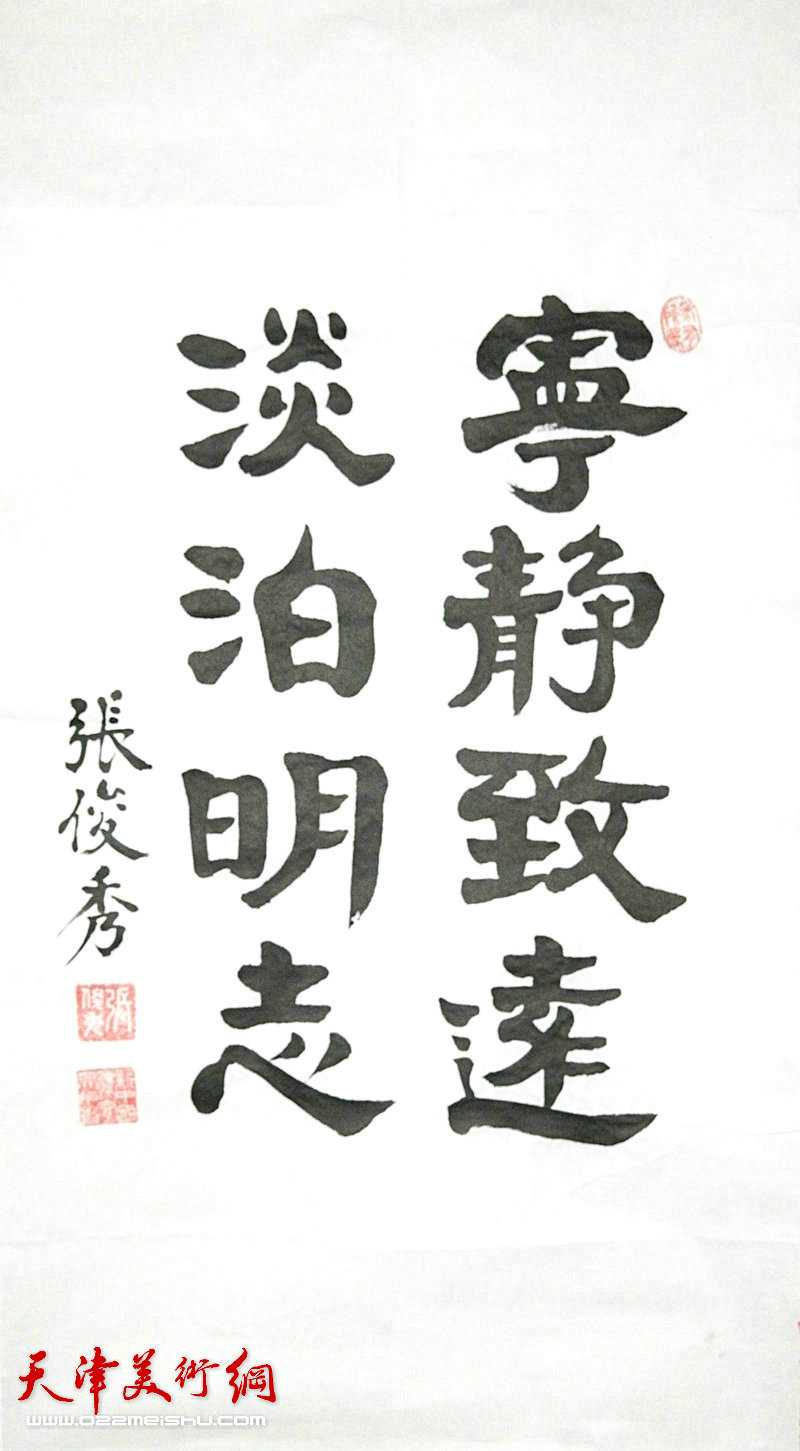 寧静致遠
淡泊明志
張俊秀
張俊秀
天津美術網
www.022meishu.com